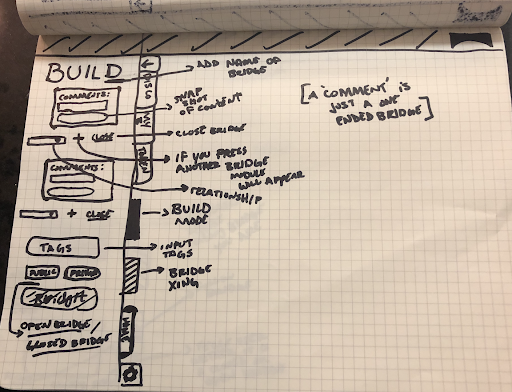 BUILD
ADD NAME OF
BRIDGE
COMMENTS:
SNAP
SHOT
OF CONTENT
+ CLOSE
CLOSE BRIDGE
IF YOU PRESS
ANOTHER BRIDGE
MODULE
WILL APPEAR
COMMENTS:
RELATIONSHIP
+ CLOSE
BUILD
MODE
TAGS
INPUT
TAGS
PUBLIC
BRIDGE
XING
Bridgit
OPEN BRIDGE/
CLOSED BRIDGE
[A 'COMMENT' IS
JUST A ONE
ENDED BRIDGE]